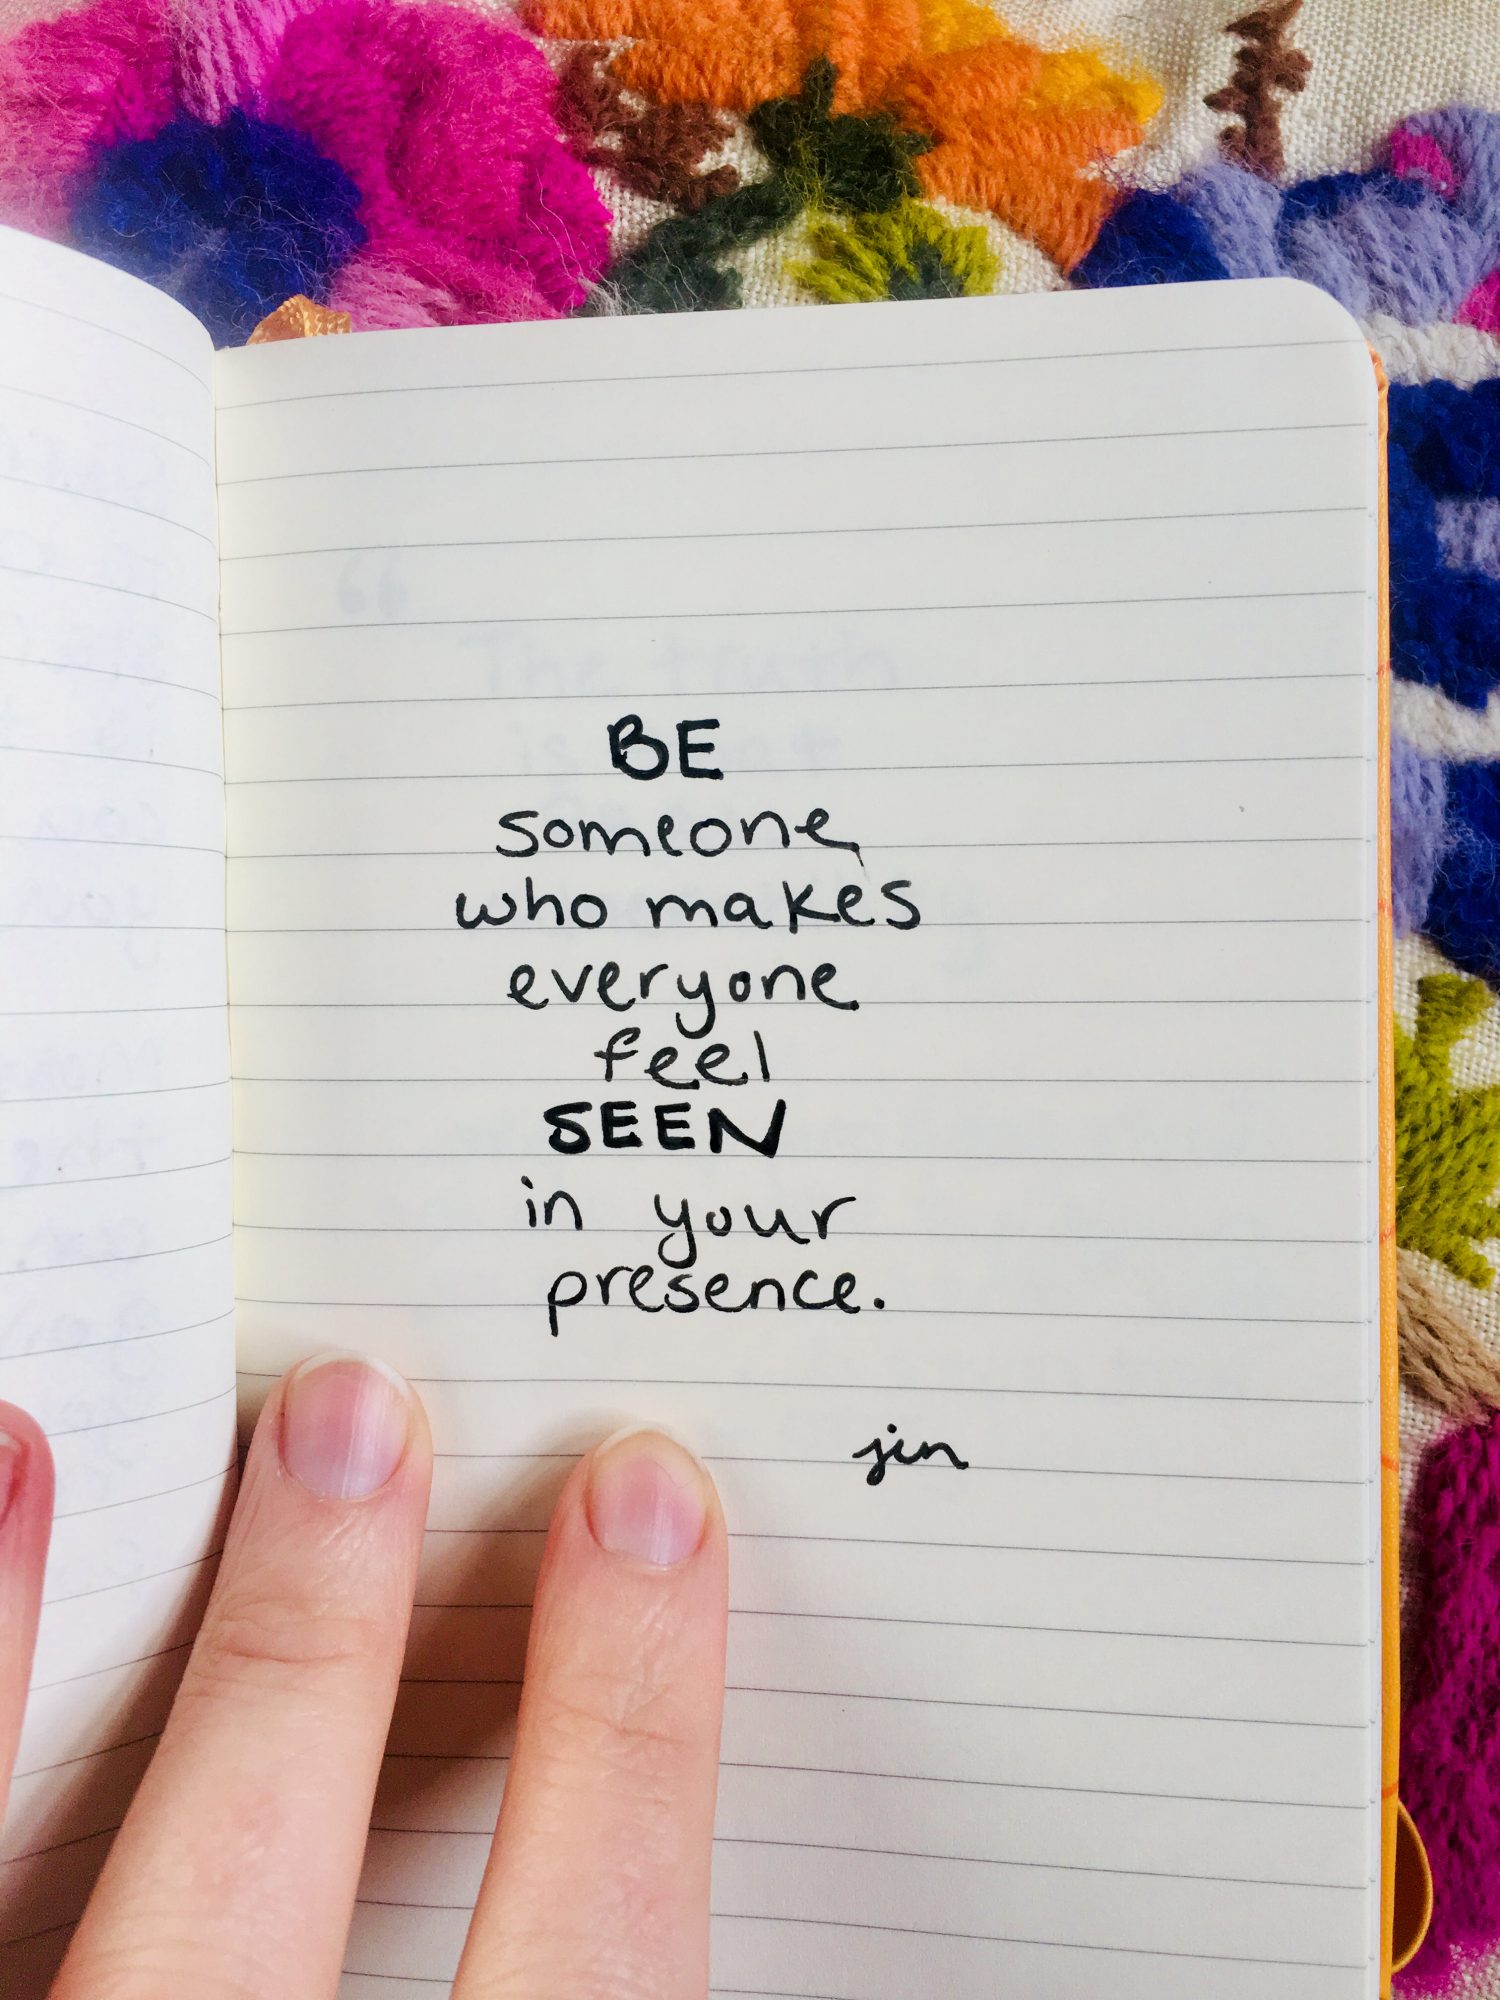 BE
someone
who makes
everyone
feel
SEEN
in your
presence.
jen